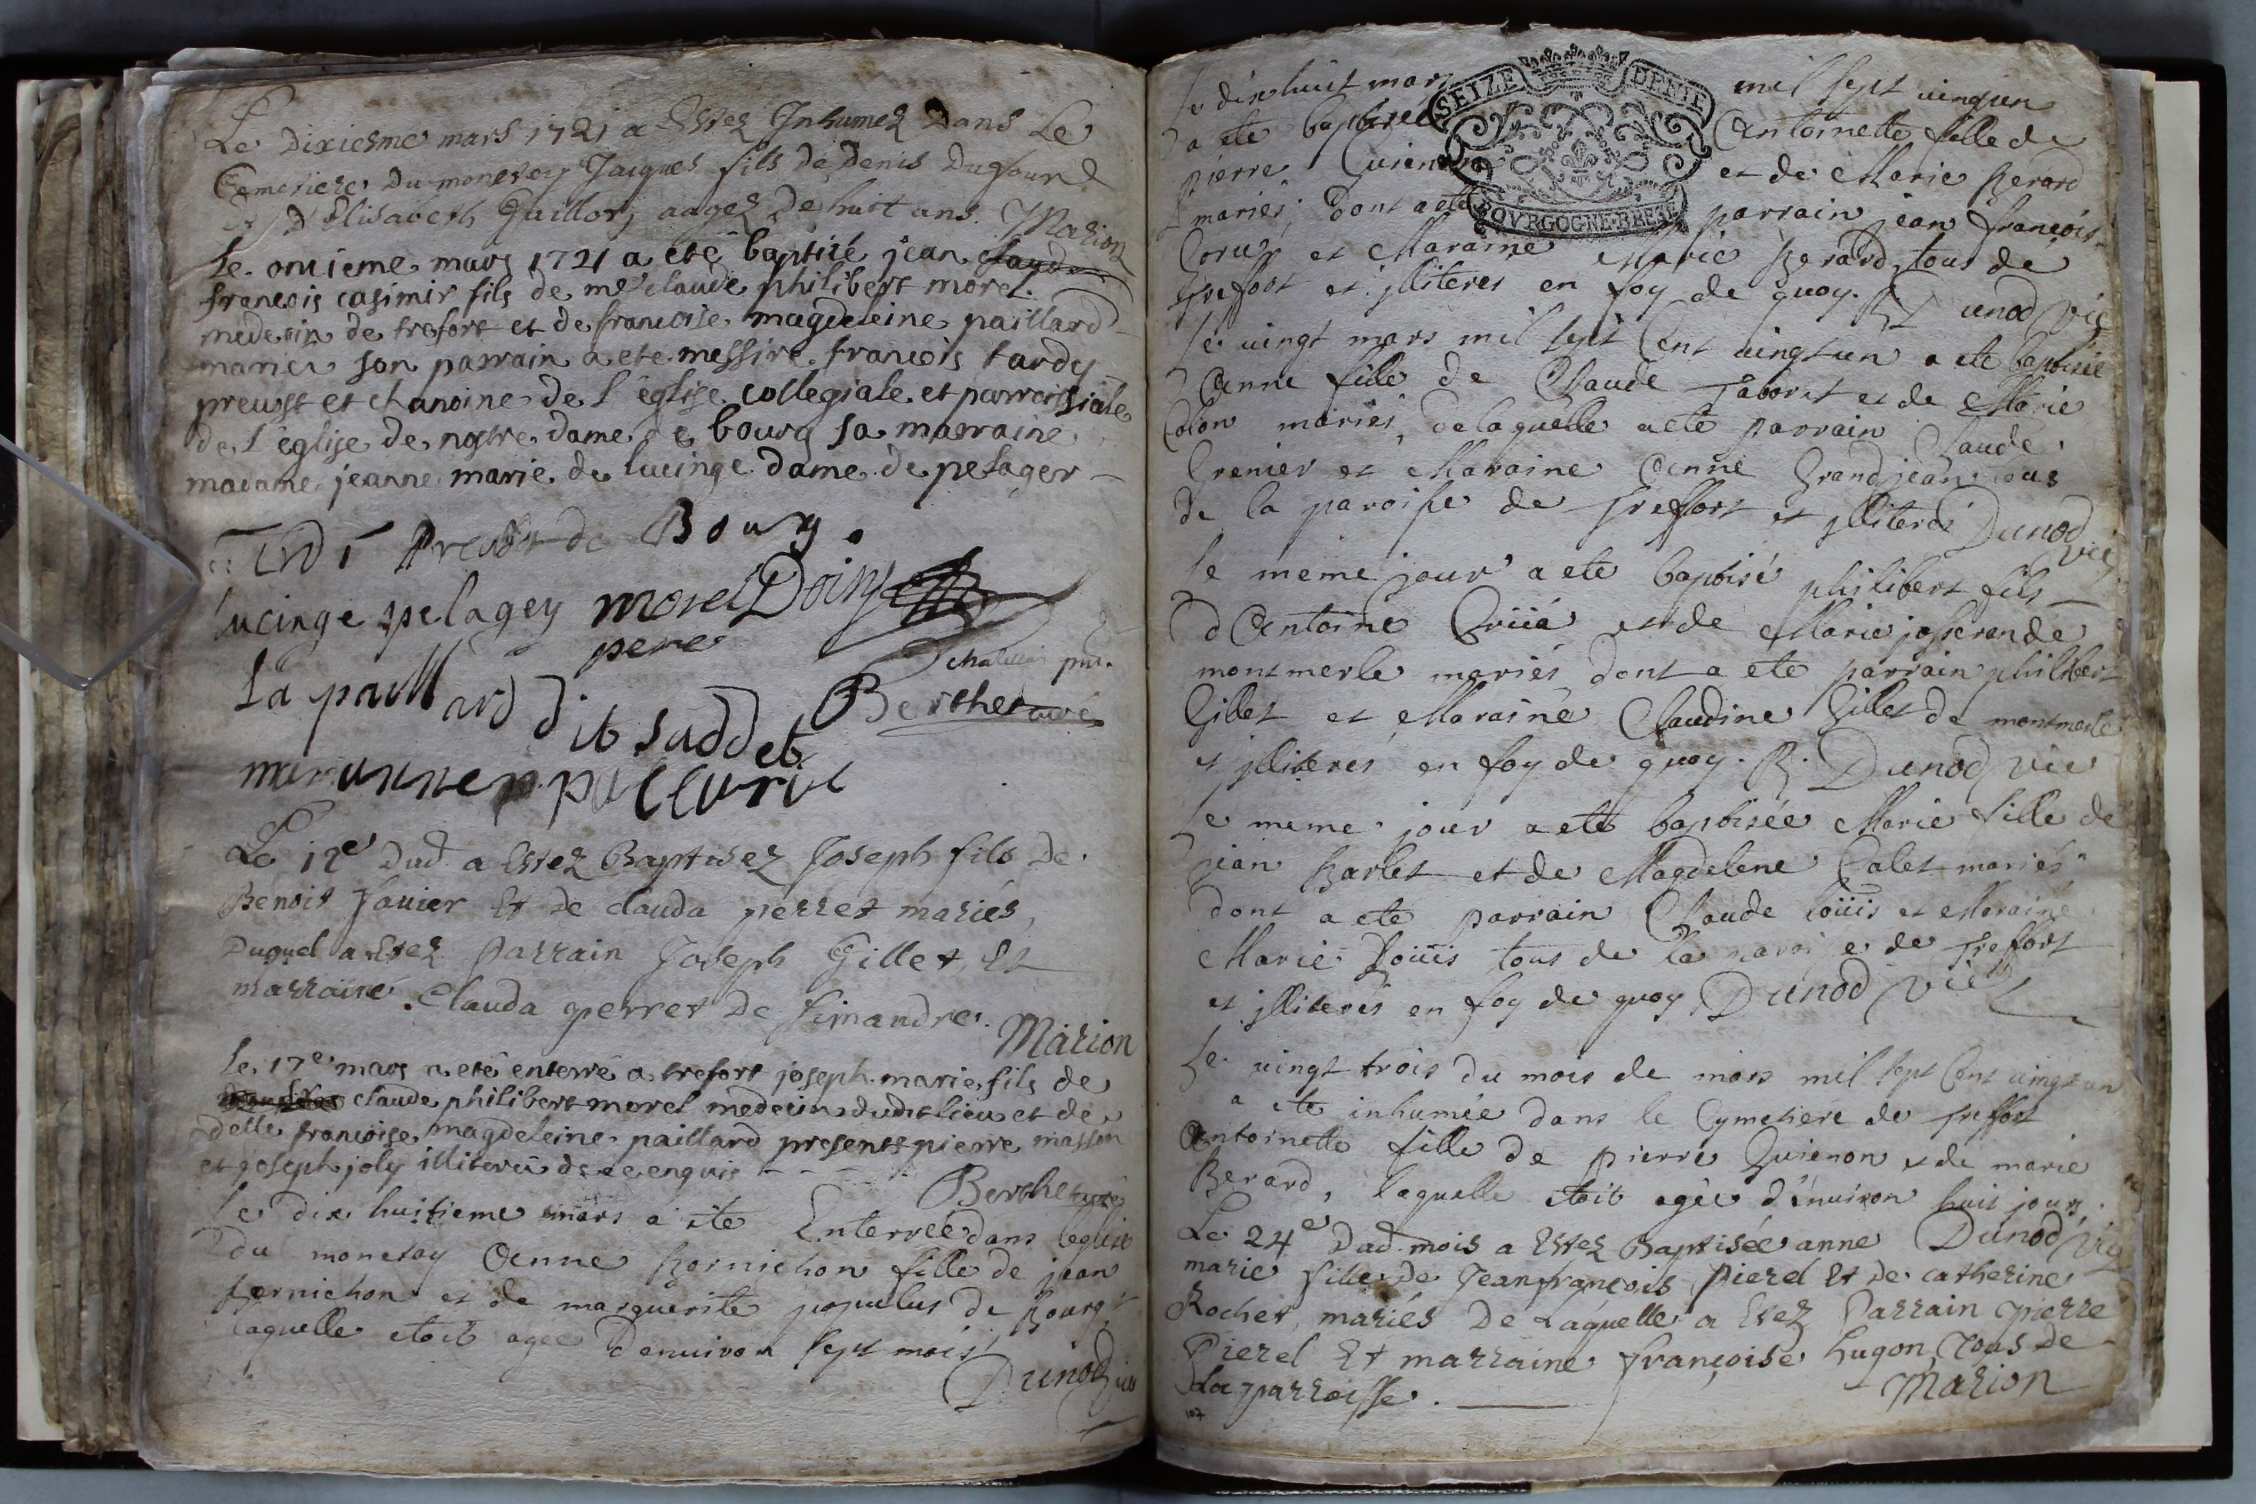 Le dixiesme mars 1721 a Estez Inhumez Dans Le
Cemetiere Du monetey Jaiques fils De Denis Dufour &
D'Elisabeth Guillon aagez De huit ans. Marion
Le onzieme mars 1721 a eté baptizé jean
francois casimir fils de mre claude philibert morel
medecin de trefort et de francoise magdeleine paillard
mariez son parrain a ete messire francois tardy
prevost et chanoine de l'eglise collegiale et parroissiale
de l'eglise de nostre dame de bourg sa marraine
madame jeanne marie de lucinge dame de pelagey
Tardi Prevost de Bourg.
lucinge pelagey morel Doing
pere
La paillard dit suddet
Berthet curé
Le 12e Dud a Estez Baptisez Joseph fils De
Benoit Janier Et De clauda perret mariés,
Duquel a Estez Parrain Joseph Gillet, Et
marraine Clauda perret De Simandre.
Marion
Le 17e mars a eté enterré a trefort joseph marie fils de
claude philibert morel medecin dudit lieu et de
delle francoise magdeleine paillard presents pierre masson
et joseph joly illiterés de ce enquis
Berthet curé
Le dix huitieme mars a ete Enterrée dans l'eglise
du monetay Anne Bornichon fille de jean
Bornichon et de marguerite populus de Bourg
laquelle etoit agée d'environ sept mois
Dunod vic
SEIZE DENIE
BOVRGOGNE·BRESE
Le dix huit mars mil sept vingt un
a ete baptisée Antoinette fille de
pierre Quienon et de Marie Berard
mariés, dont a ete parrain jean francois
et Maraine Marie Berard, tous de
Treffort et jlliteres en foy de quoy. Dunod Vic
Le vingt mars mil sept Cent vingt un a ete baptisée
Anne fille de Claude Taboret et de Marie
Colon mariés, de laquelle a ete parrain Claude
Grenier et Maraine Anne Grandjean tous
de la paroisse de Treffort et jlliterés Dunod
vic
Le meme jour a ete baptisé philibert fils
d'Antoine et de Marie josserand de
montmerle mariés dont a ete parrain philibert
Gillet et Maraine Claudine Gillet de montmerle
et jlliterés en foy de quoy. R. Dunod vic
Le meme jour a ete baptisée Marie fille de
jean Barlet et de Magdelene Calet mariés
dont a ete parrain Claude loüis et Maraine
Marie loüis tous de la paroi e de Treffort
et jlliterés en foy de quoy Dunod Vic
Le vingt trois du mois de mars mil sept Cent vingt un
a ete inhumée dans le Cymetiere de Treffort
Antoinette fille de pierre Quienon et de marie
Berard, laquelle etoit agée d'environ huit jours.
Dunod Vic
Le 24e Dud. mois a Estez Baptisée anne
marie fille de Jean françois Pierel Et de catherine
Rocher, mariés De Laquelle a Estez Parrain pierre
Pierel Et marraine françoise hugon, Tous de
La parroisse.
Marion
107